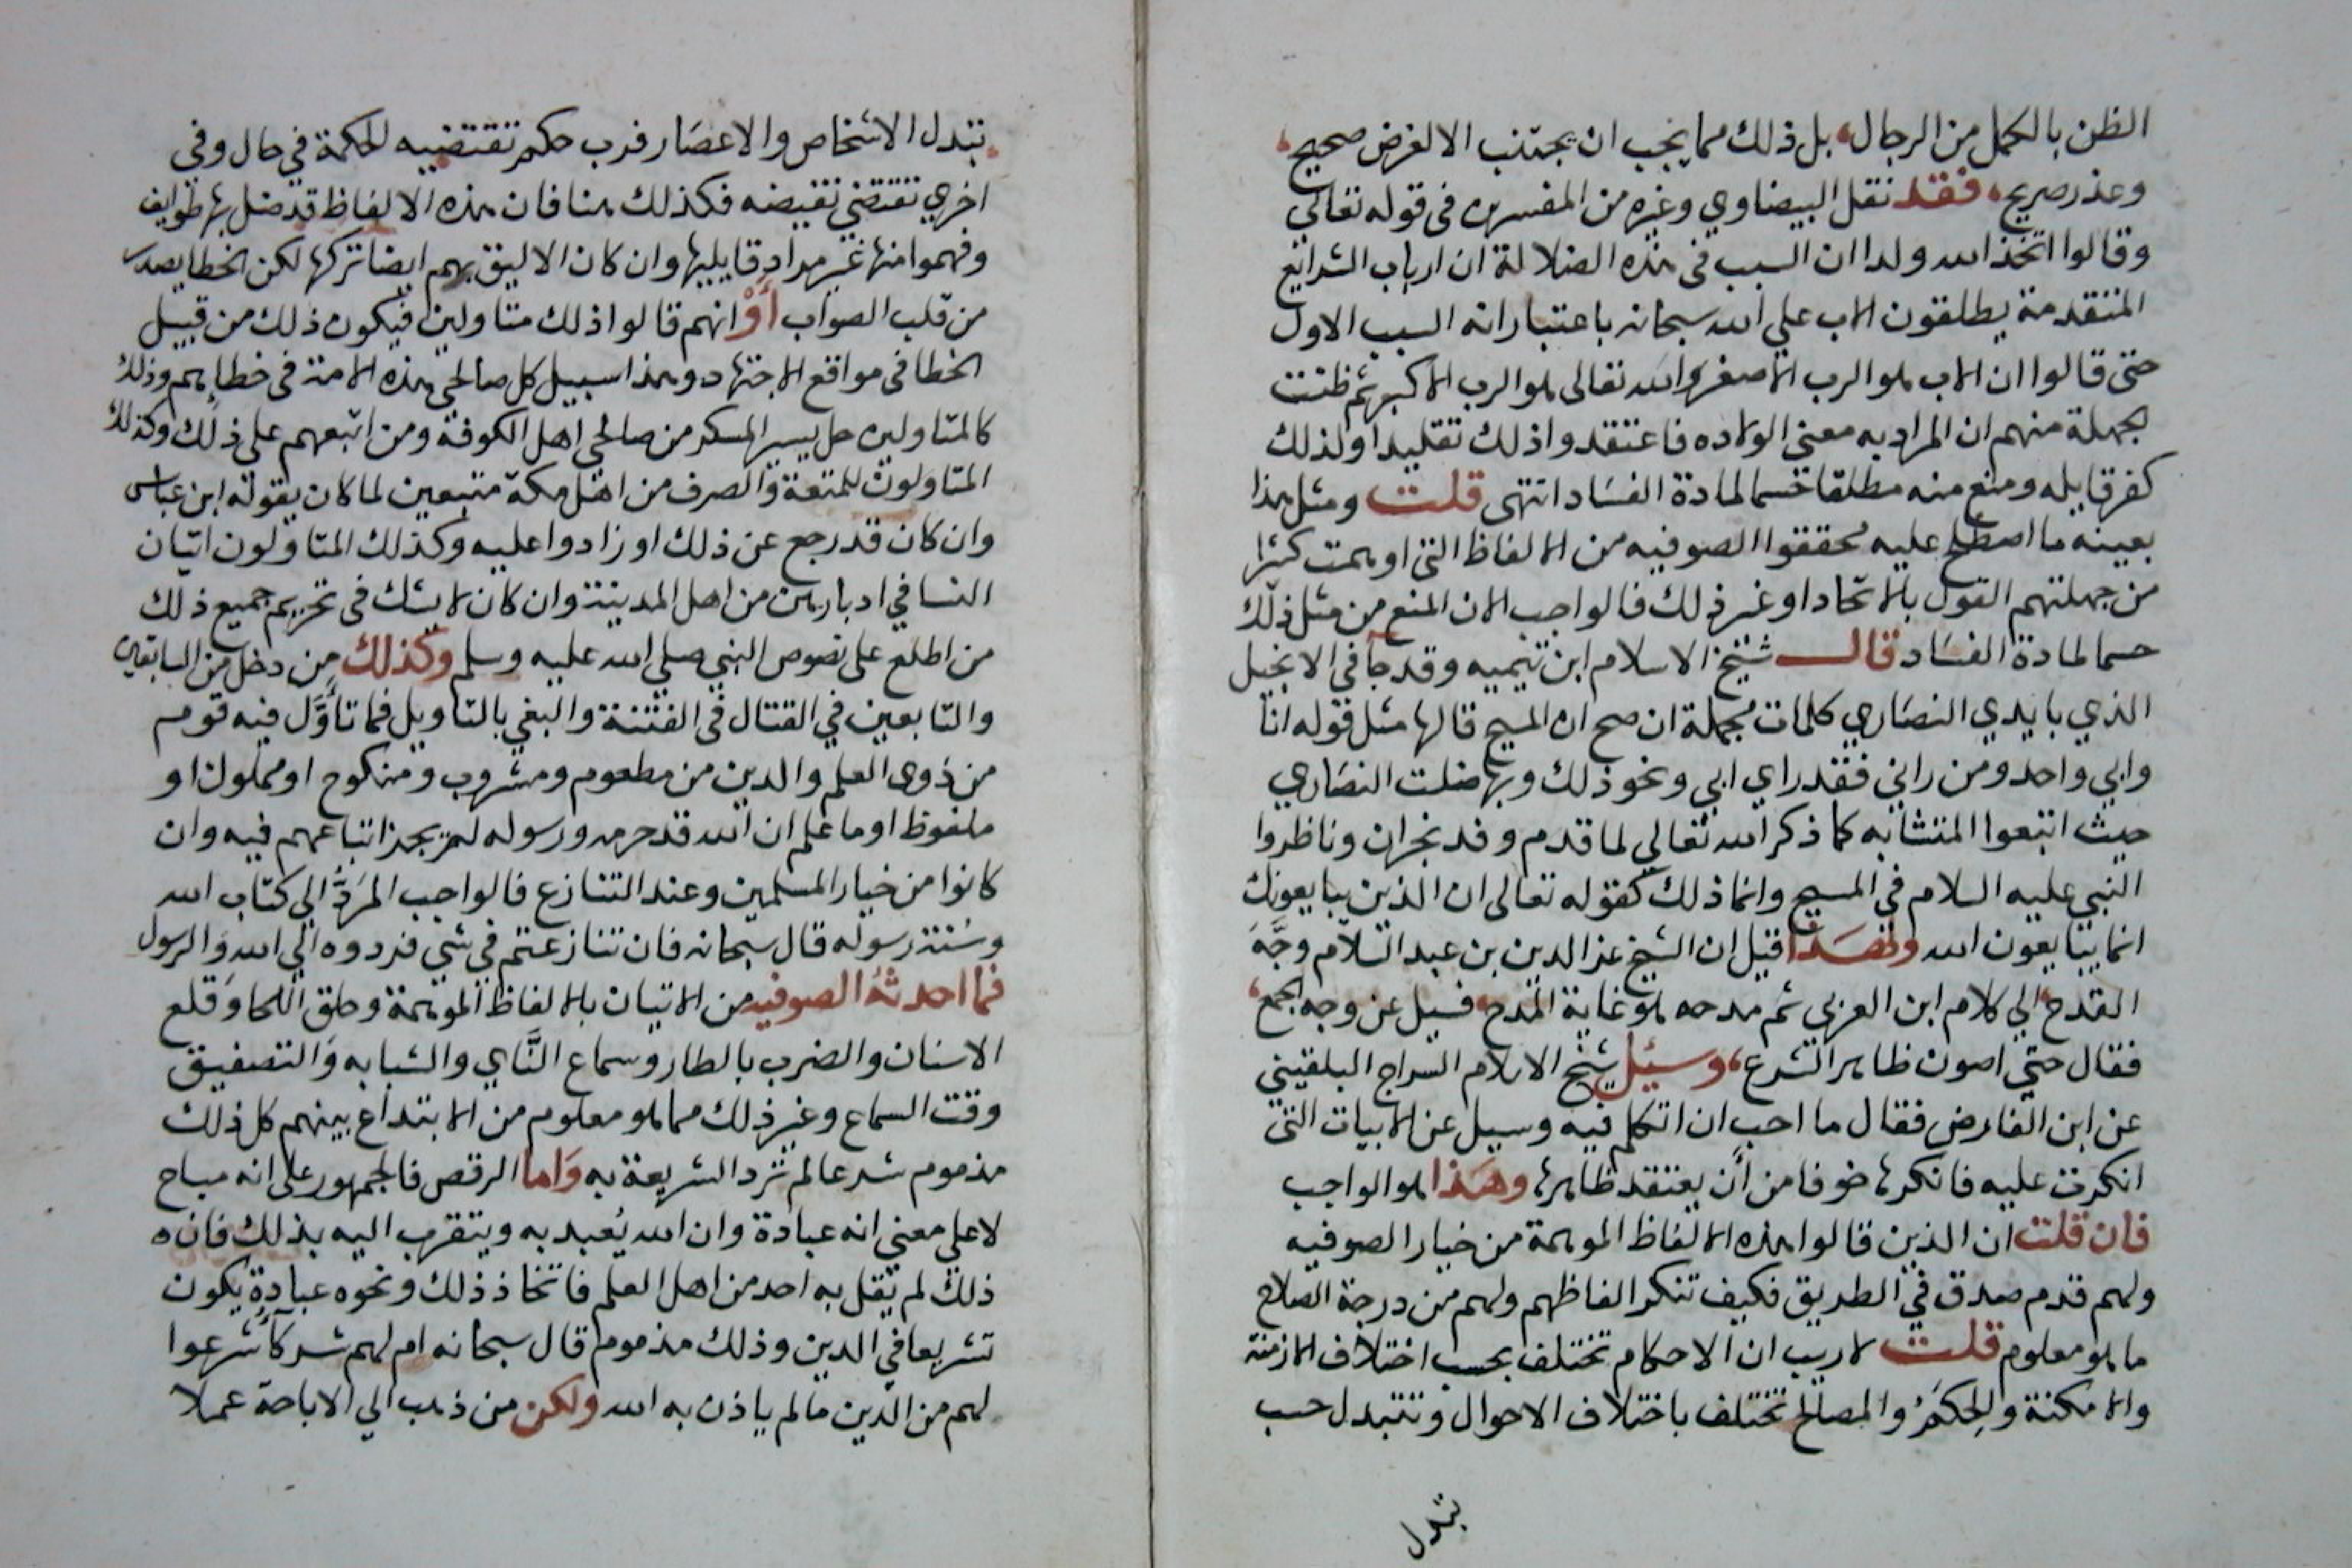 الظن بالكمل من الرجال، بل ذلك مما يجب ان يجتنب الا لغرض صحيح،
وعذر صريح، فقد نقل البيضاوي وغيره من المفسرين فى قوله تعالى
وقالوا اتخذ الله ولدا ان السبب فى هذه الضلالة ان ارباب الشرايع
المتقدمة يطلقون الاب على الله سبحانه باعتبار انه السبب الاول
حتى قالوا ان الاب هو الرب الاصغر والله تعالى هو الرب الاكبر ثم ظنت
الجهلة منهم ان المراد به معنى الولاده فاعتقدوا ذلك تقليدا ولذلك
كفر قايله ومنع منه مطلقا حسما لمادة الفساد انتهى قلت ومثل هذا
بعينه ما اصطلح عليه محققوا الصوفيه من الالفاظ التى اوهمت كثيرا
من جهلتهم القول بالاتحاد او غير ذلك فالواجب الان المنع من مثل ذلك
حسما لمادة الفساد قال شيخ الاسلام ابن تيميه وقد جآ فى الانجيل
الذي بايدي النصاري كلمات مجملة ان صح ان المسيح قالها مثل قوله انا
وابي واحد ومن راني فقد راي ابي ونحو ذلك وبها ضلت النصاري
حيث اتبعوا المتشابه كما ذكر الله تعالي لما قدم وفد نجران وناظروا
النبي عليه السلام في المسيح وانما ذلك كقوله تعالى ان الذين يبايعونك
انما يبايعون الله ولهذا قيل ان الشيخ عز الدين بن عبد السلام وجَّهَ
القدح الي كلام ابن العربي ثم مدحه هو غاية المدح، فسيل عن وجه الجمع،
فقال حتي اصون ظاهر الشرع، وسئيل شيخ الاسلام السراج البلقيني
عن ابن الفارض فقال ما احب ان اتكلم فيه وسيل عن الابيات التى
انكرت عليه فانكرها خوفا من أن يعتقد ظاهرها وهذا هو الواجب
فان قلت ان الذين قالوا هذه الالفاظ الموهمة من خيار الصوفيه
ولهم قدم صدق في الطريق فكيف تنكر الفاظهم ولهم من درجة الصلاح
ما هو معلوم قلت لا ريب ان الاحكام تختلف بحسب اختلاف الازمنة
والامكنة والحِكَمُ والمصالح تختلف باختلاف الاحوال وتتبدل حسب
تبدل
تبدل الاشخاص والاعصَار فرب حكم تقتضيه الحكمة في حال وفي
اخري تقتضي نقيضه فكذلك هنا فان هذه الالفاظ قد ضل بها طوايف
وفهموا منها غير مراد قايليها وان كان الاليق بهم ايضا تركها لكن الخطا يصدر
من قلب الصواب أوْ انهم قالوا ذلك متاولين فيكون ذلك من قبيل
الخطا فى مواقع الاجتهاد وهذا سبيل كل صالحي هذه الامة فى خطايهم وذلك
كالمتاولين حل يسير المسكر من صالحي اهل الكوفة ومن اتبعهم على ذلك وكذلك
المتاولون للمتعة والصرف من اهل مكة متبعين لما كان يقوله ابن عباس
وان كان قد رجع عن ذلك او زادوا عليه وكذلك المتاولون اتيان
النسا في ادبارهن من اهل المدينة وان كان لا يشك فى تحريم جميع ذلك
من اطلع على نصوص النبي صلى الله عليه وسلم وكذلك من دخل من السابقين
والتابعين في القتال فى الفتنة والبغي بالتاويل فما تأوَّل فيه قوم
من ذوي العلم والدين من مطعوم ومشروب ومنكوح او مملوك او
ملفوظ او ما علم ان الله قد حرمه ورسوله لم يجز اتباعهم فيه وان
كانوا من خيار المسلمين وعند التنازع فالواجب المَرَدُّ الي كتاب الله
وسُنة رسوله قال سبحانه فان تنازعتم في شي فردوه الي الله والرسول
فما احدثهُ الصوفيه من الاتيان بالالفاظ الموهمة وحلق اللحا وقلع
الاسنان والضرب بالطار وسماع النَّاي والشبابه والتصفيق
وقت السماع وغير ذلك مما هو معلوم من الابتداع بينهم كل ذلك
مذموم شرعا لم ترد الشريعة به وَاما الرقص فالجمهور على انه مباح
لا على معني انه عبادة وان الله يُعبد به ويتقرب اليه بذلك فان ه
ذلك لم يقل به احد من اهل العلم فاتخاذ ذلك ونحوه عبادة يكون
تشريعا في الدين وذلك مذموم قال سبحانه ام لهم شركآ شرعوا
لهم من الدين ما لم ياذن به الله ولكن من ذهب الي الاباحة عملا